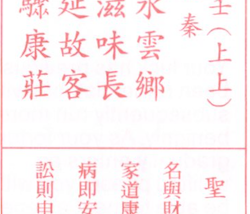 壬（上上）
秦
水雲鄉
滋味長
延故客
康莊
聖
名與財
家道康
病即安
訟則申